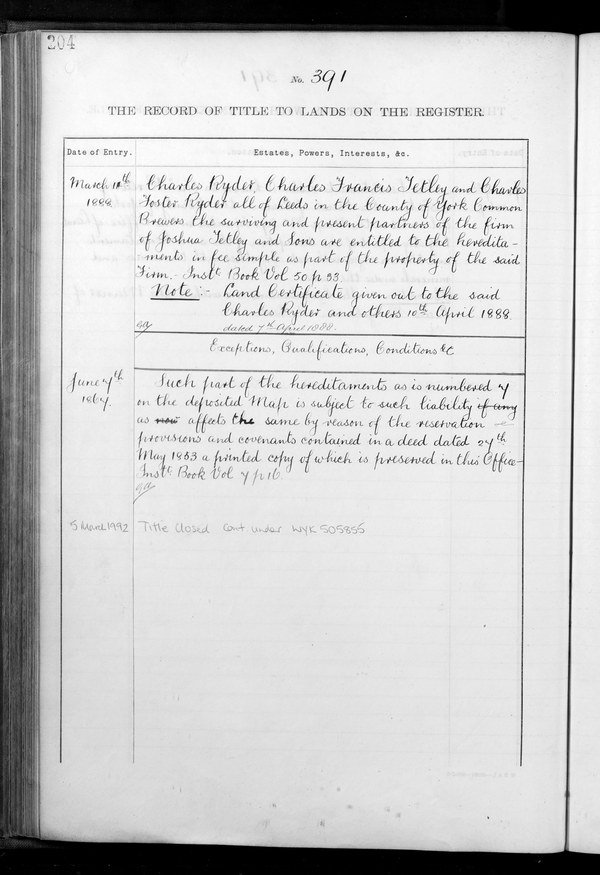 204
No. 391
THE RECORD OF TITLE TO LANDS ON THE REGISTER
Date of Entry.
Estates, Powers, Interests, &c.
March 10th
1888.
Charles Ryder, Charles Francis Tetley and Charles
Foster Ryder all of Leeds in the County of York Common
Brewers the surviving and present partners of the firm
of Joshua Tetley and Sons are entitled to the heredita-
ments in fee simple as part of the property of the said
Firm. Instt Book Vol 50 p 93
Note :- Land Certificate given out to the said
Charles Ryder and others 10th April 1888
dated 7th April 1888.
Exceptions, Qualifications, Conditions &c
June 7th
1867.
Such part of the hereditaments as is numbered 7
on the deposited Map is subject to such liability if any
as now affects the same by reason of the reservation
provisions and covenants contained in a deed dated 27th
May 1853 a printed copy of which is preserved in this Office-
Instt Book Vol 7 p 16.
5 March 1992
Title Closed Cont. under WYK 505855